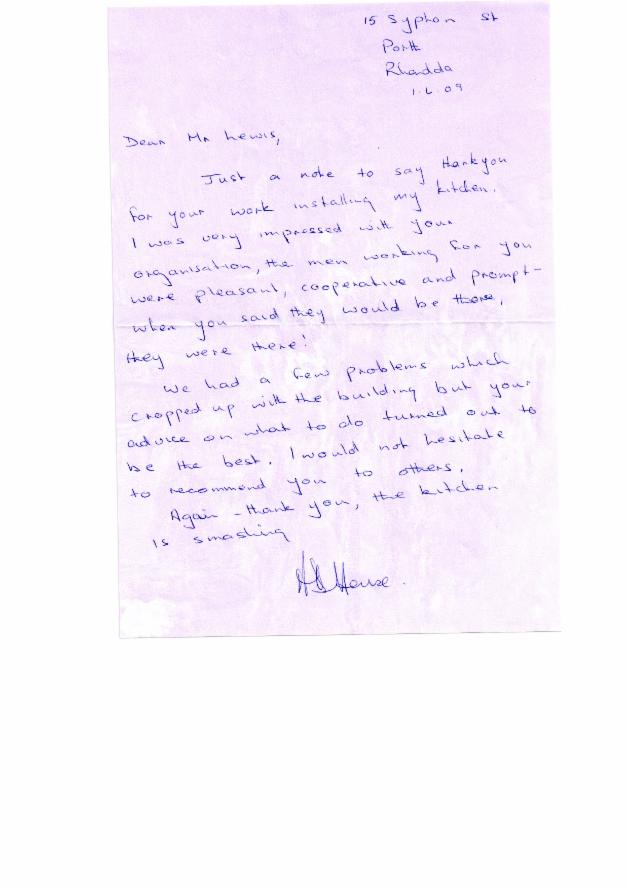 15 Syphon St
Porth
Rhondda
1.6.09
Dear Mr Lewis,
Just a note to say thankyou
for your work installing my kitchen.
I was very impressed with your
organisation, the men working for you
were pleasant, cooperative and prompt -
when you said they would be there,
they were there!
We had a few problems which
cropped up with the building but your
advice on what to do turned out to
be the best. I would not hesitate
to recommend you to others.
Again - thank you, the kitchen
is smashing